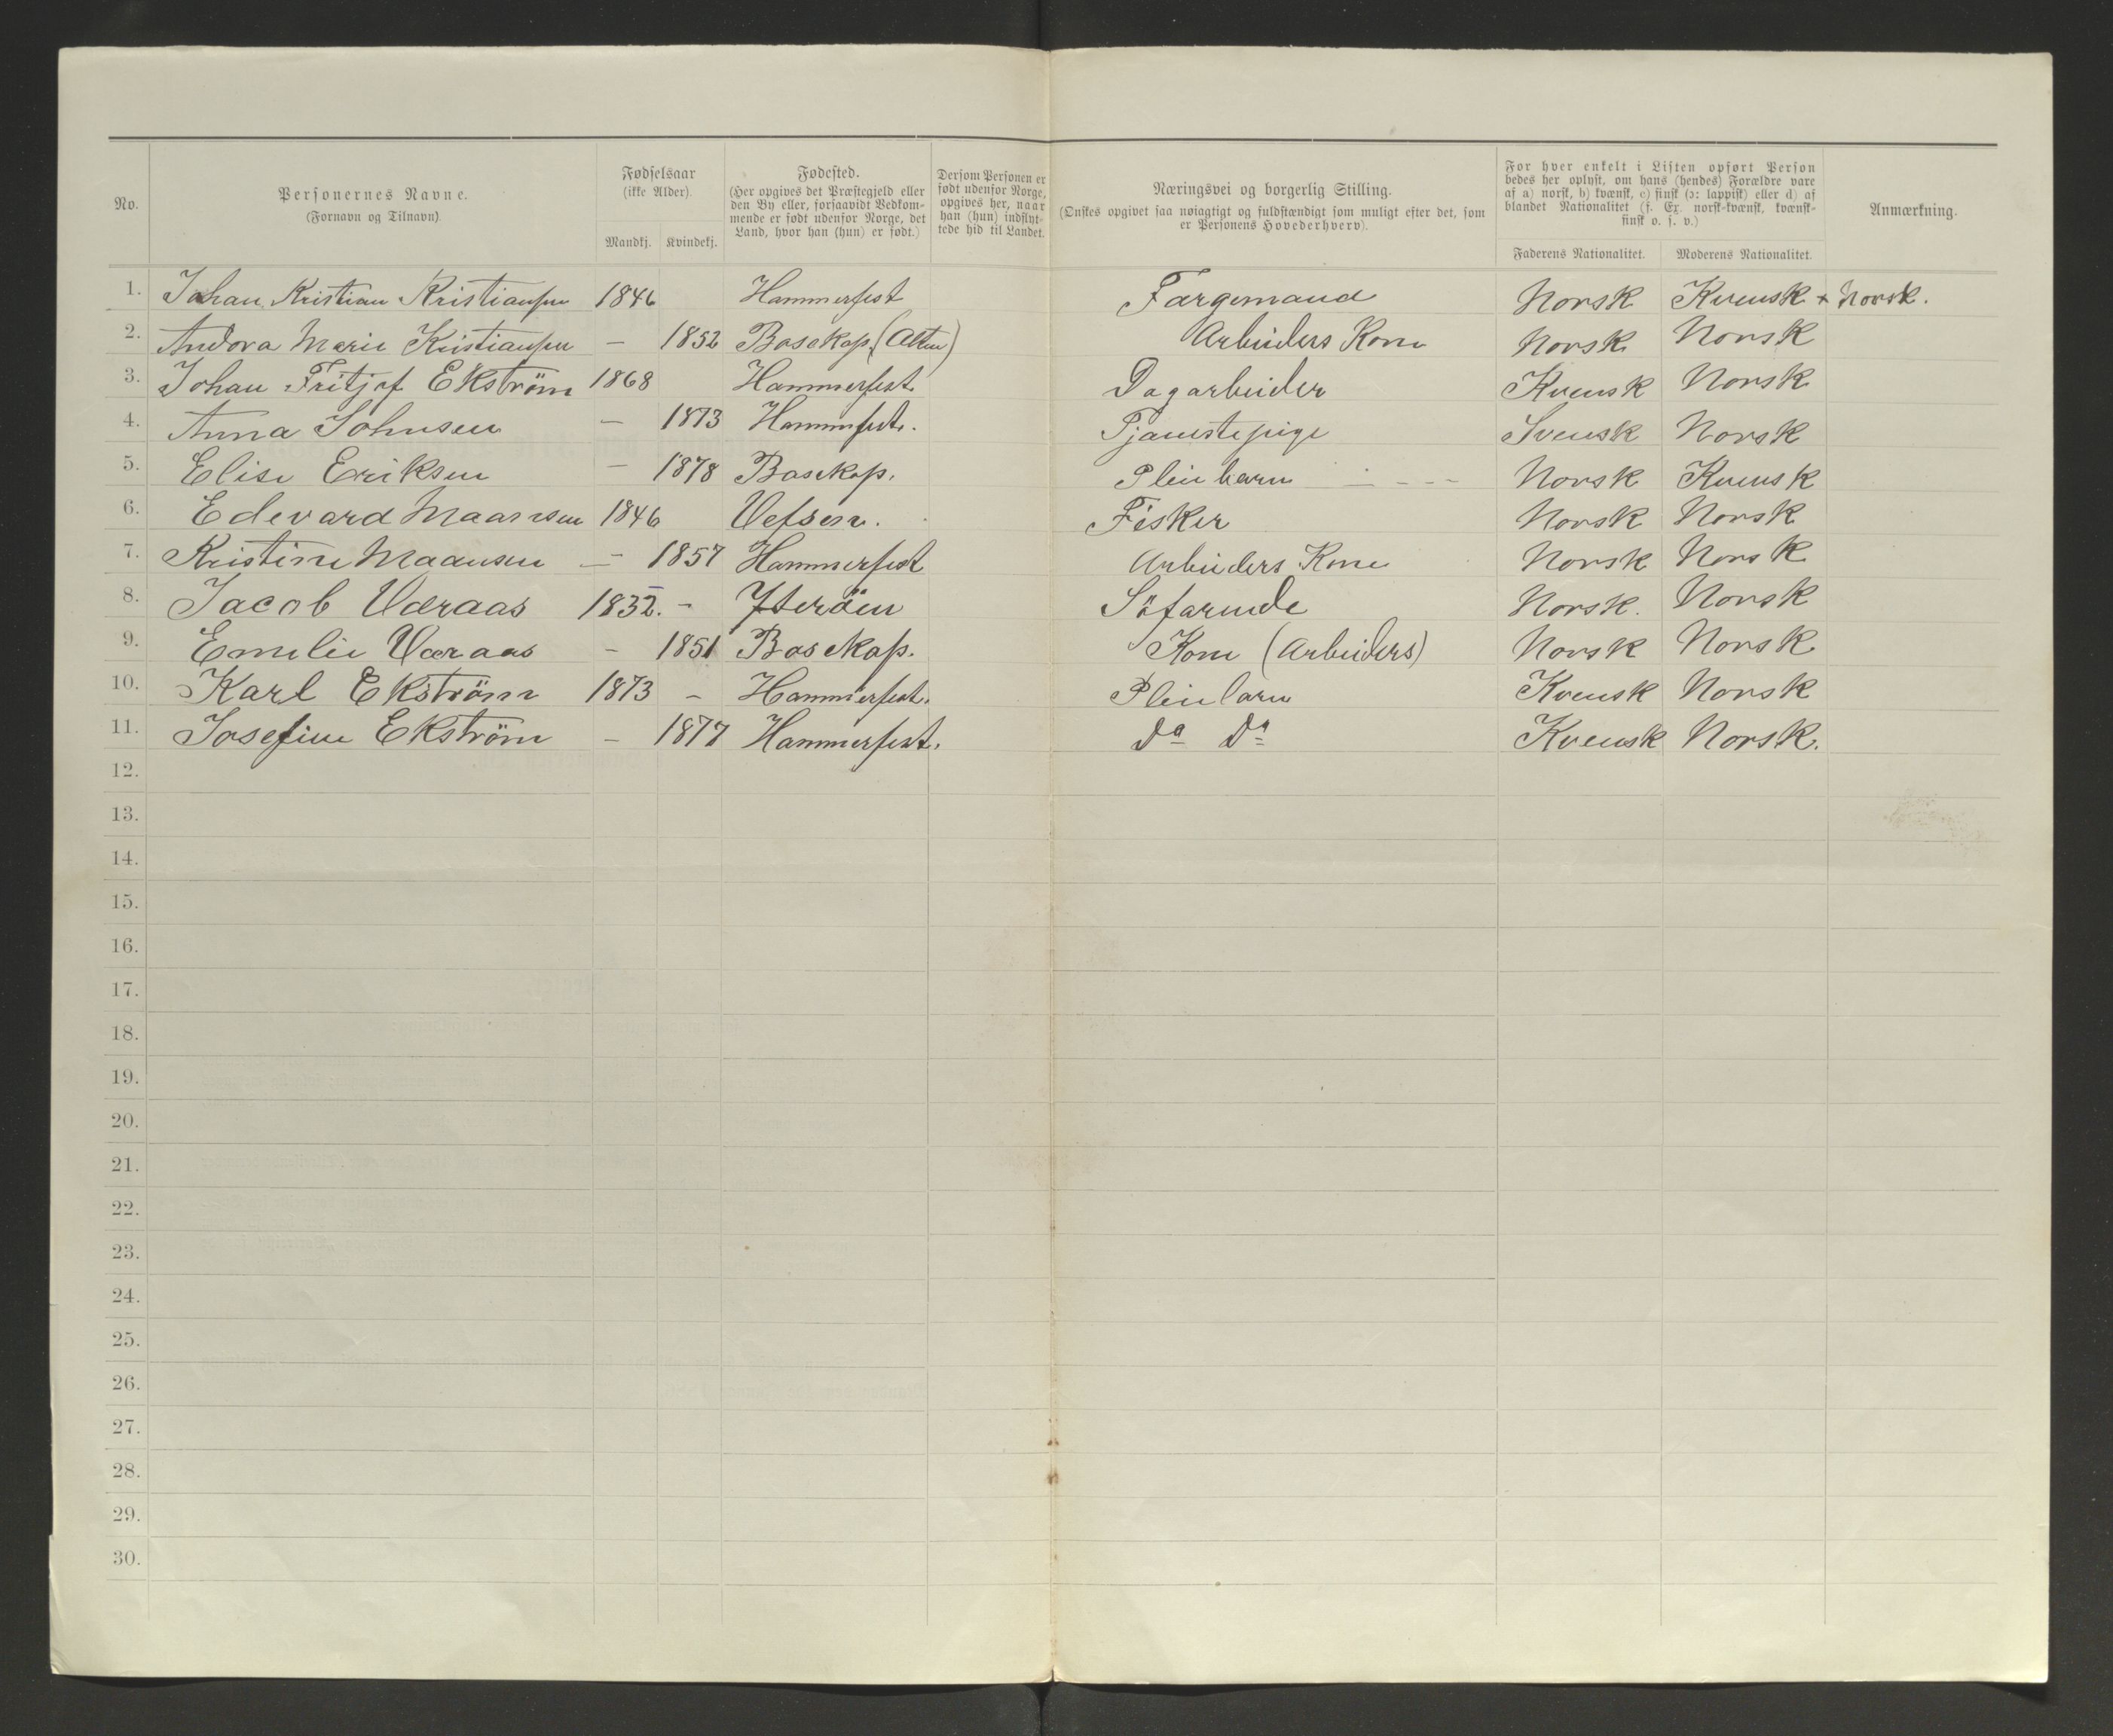 No.
Personernes Navne.
(Fornavn og Tilnavn).
Fødselsaar
(ikke Alder).
Mandkj. Kvindekj.
Fødested.
(Her opgives det Præstegjeld eller
den By eller, forsaavidt Vedkom-
mende er født udenfor Norge, det
Land, hvor han (hun) er født.)
Dersom Personen er
født udenfor Norge,
opgives her, naar
han (hun) indflyt-
tede hid til Landet.
Næringsvei og borgerlig Stilling.
(Ønskes opgivet saa nøiagtigt og fuldstændigt som muligt efter det, som
er Personens Hovederhverv).
For hver enkelt i Listen opført Person
bedes her oplyst, om hans (hendes) Forældre vare
af a) norsk, b) kvænsk, c) finsk (ɔ: lappisk) eller d) af
blandet Nationalitet (f. Ex. norsk-kvænsk, kvænsk-
finsk o. s. v.)
Faderens Nationalitet. Moderens Nationalitet.
Anmærkning.
1. Johan Kristian Kristiansen 1846 Hammerfest Færgemand Norsk Kvensk + Norsk.
2. Andora Marie Kristiansen — 1852 Bosekop (Alten) Arbeiders Kone Norsk Norsk
3. Johan Fritjof Ekström 1868 Hammerfest. Dagarbeider Kvensk Norsk
4. Anna Johnsen — 1873 Hammfest. Tjænestepige Svensk Norsk
5. Elise Eriksen — 1878 Bosekop. Pleiebarn — - - - Norsk Kvensk
6. Edevard Maansen 1846 Vefsen. Fisker Norsk Norsk
7. Kristine Maansen — 1857 Hammerfest Arbeiders Kone Norsk Norsk
8. Jacob Væraas 1832. - Yteröen Söfarende Norsk. Norsk
9. Emelie Væraas - 1851 Bosekop. Kone (Arbeiders) Norsk Norsk
10. Karl Ekström 1873 - Hammerfest. Pleiebarn Kvensk Norsk
11. Josefine Ekström - 1877 Hammerfest. Do Do Kvensk Norsk.
12.
13.
14.
15.
16.
17.
18.
19.
20.
21.
22.
23.
24.
25.
26.
27.
28.
29.
30.